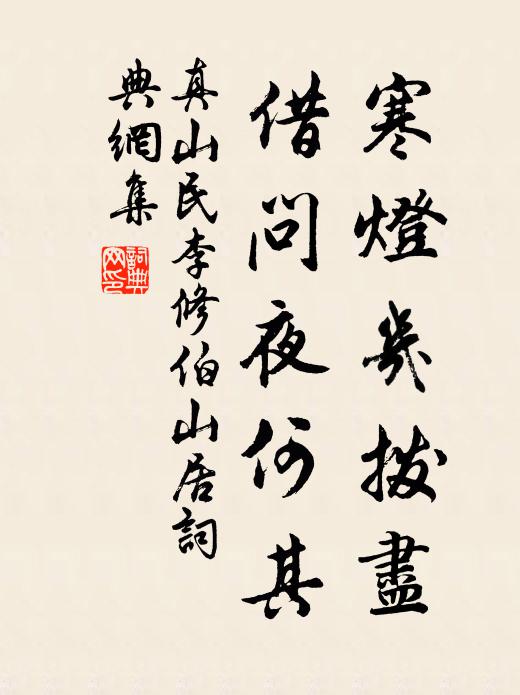 寒燈幾撥盡
借問夜何其
真山民李修伯山居詞
典網集
詞典
網印